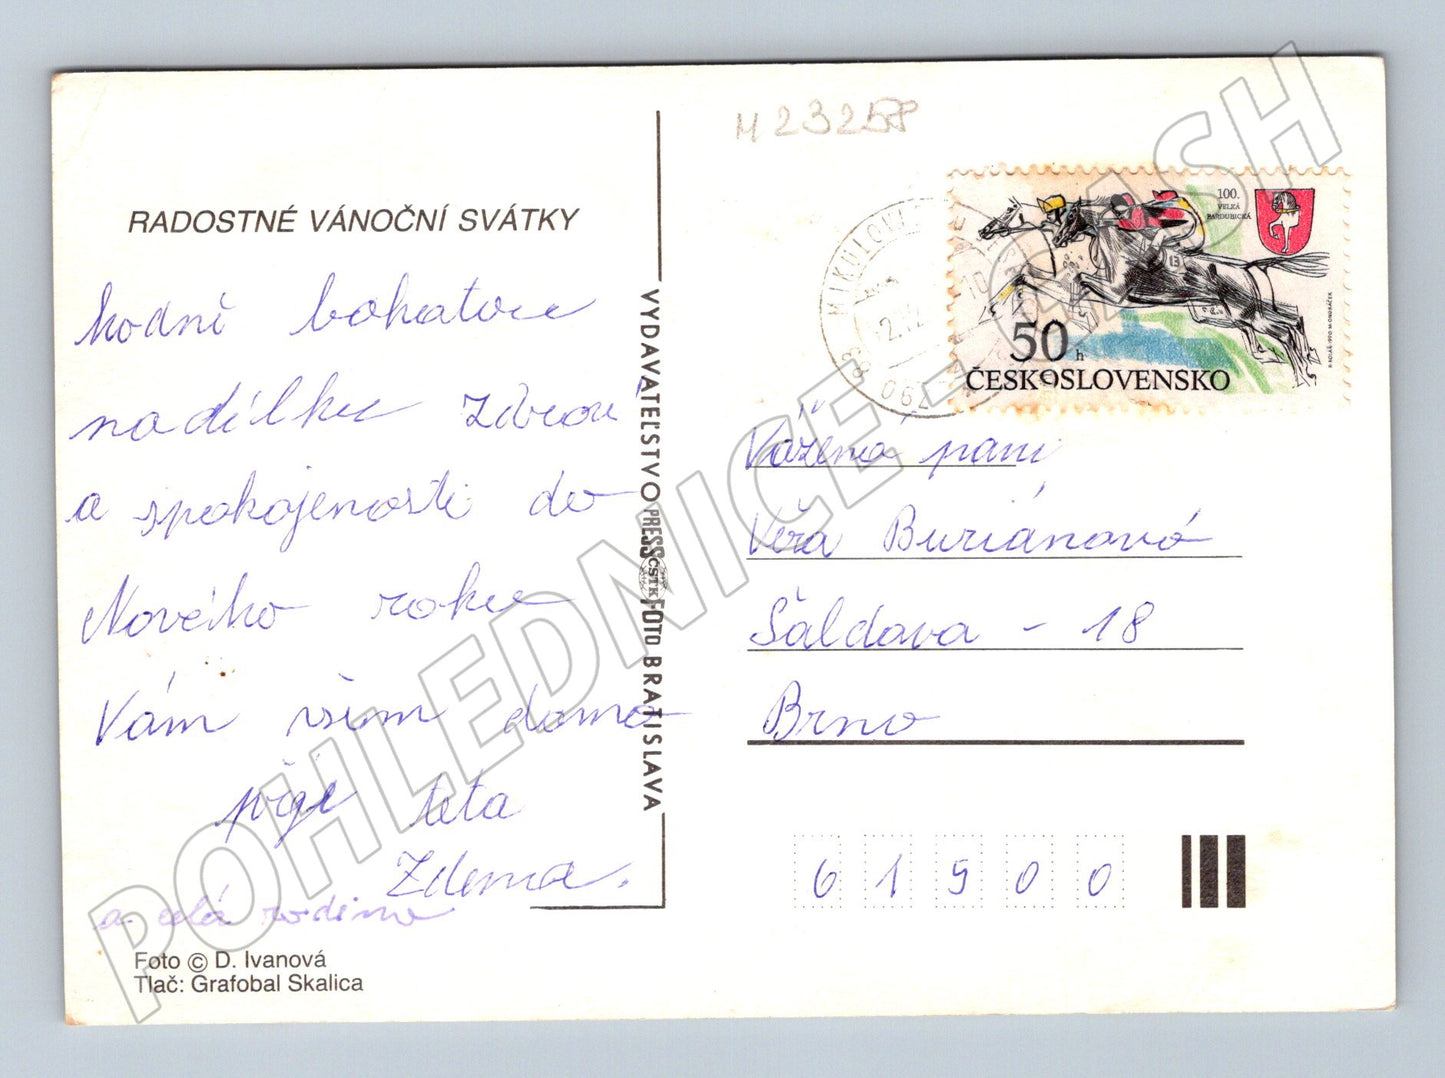 M 23258
RADOSTNÉ VÁNOČNÍ SVÁTKY
hodně bohatou
nadílku zdraví
a spokojenosti do
Nového roku
Vám všem doma
přeje teta
Zdena.
a celá rodina
Foto © D. Ivanová
Tlač: Grafobal Skalica
VYDAVATEĽSTVO PRESSFOTO BRATISLAVA
ČSTK
100.
VELKÁ
PARDUBICKÁ
13
50 h
ČESKOSLOVENSKO
Vážená paní
Věra Buriánová
Šaldova - 18
Brno
61900
POHLEDNICE - CASH